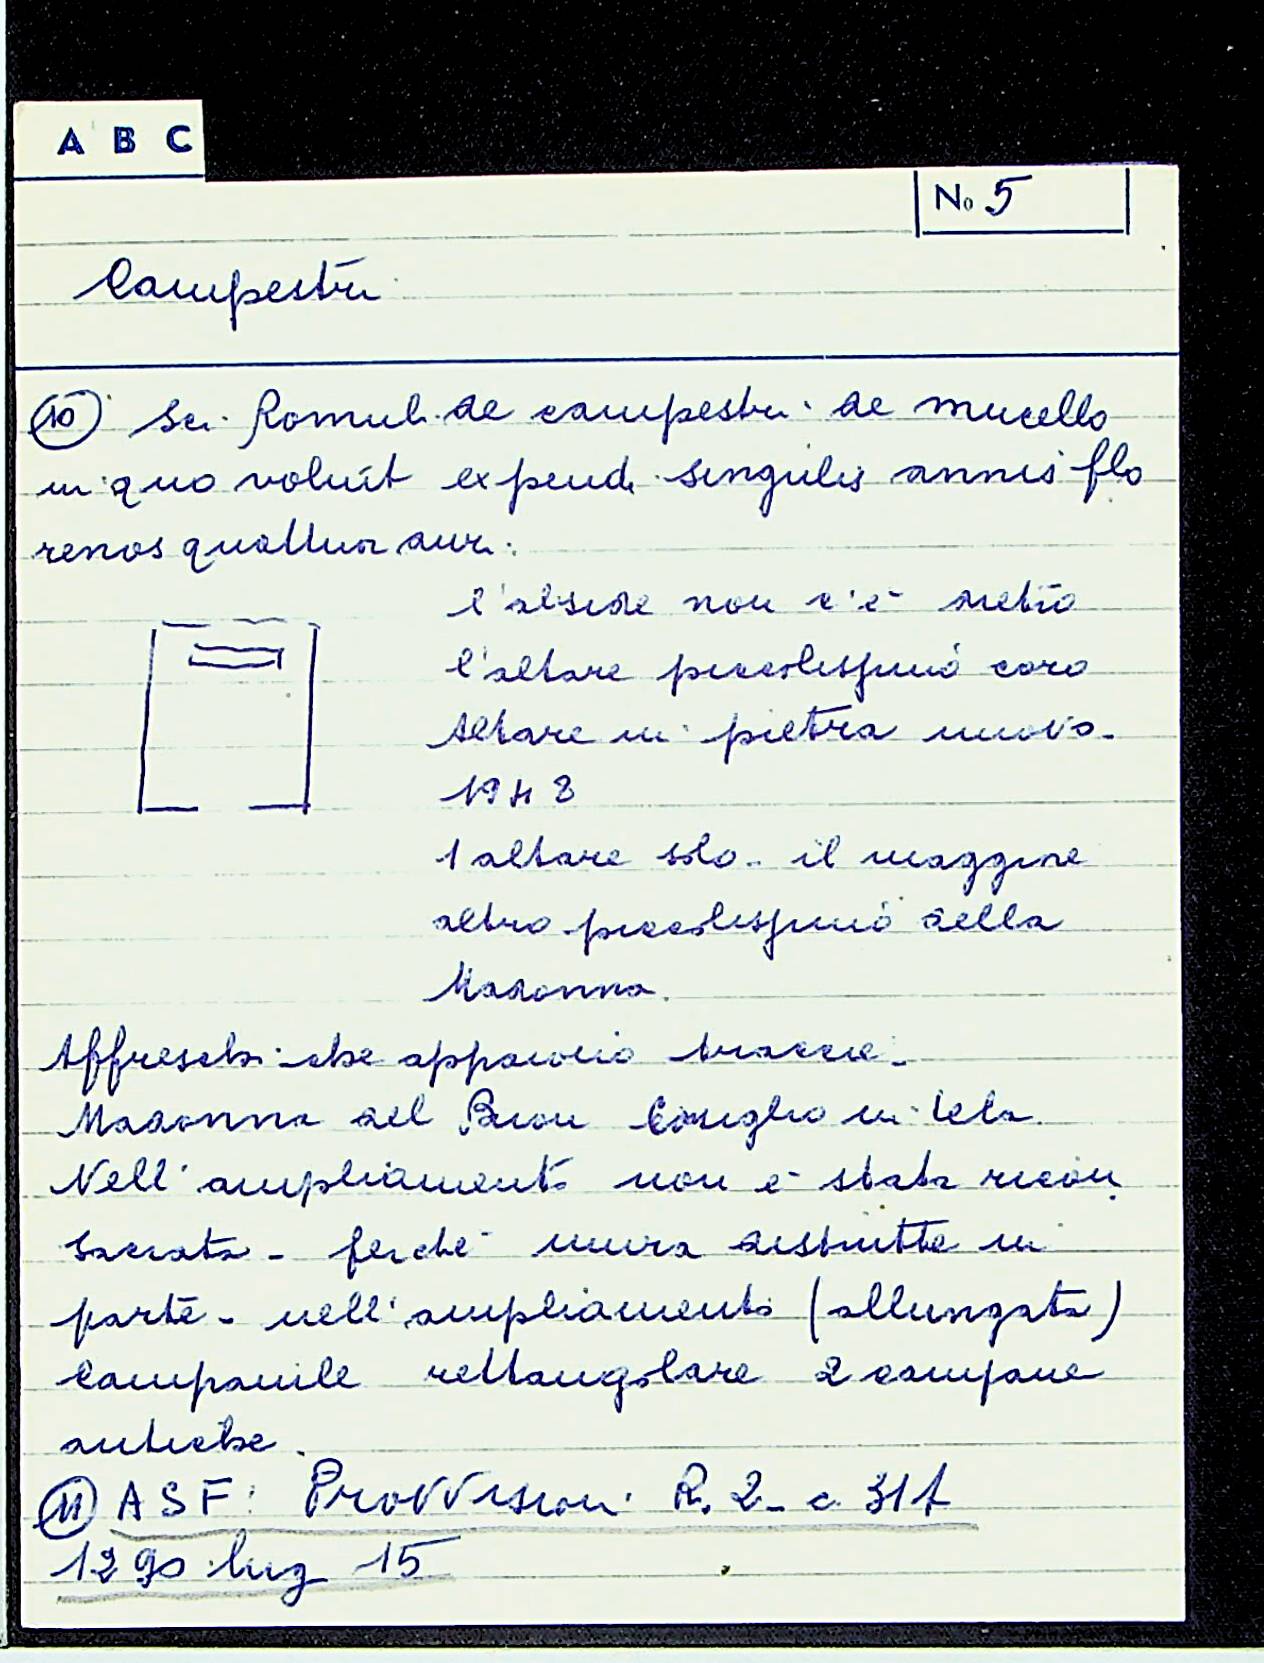 A B C
No 5
Campestri
10 Sci. Romuli de campestri de mucello
in quo voluit expendi singulis annis flo
renos quattuor aur.
l'abside non c'è dietro
l'altare piccolissimo coro
Altare in pietra nuovo -
1948
1 altare solo - il maggiore
altro piccolissimo della
Madonna.
Affreschi che appaiono tracce -
Madonna del Buon Consiglio in tela
Nell'ampliamento non è stata ricon
sacrata - perché mura distrutte in
parte - nell'ampliamento (allungata)
Campanile rettangolare 2 campane
antiche.
11 ASF: Provvisioni R. 2 - c 31t
1290 lug 15